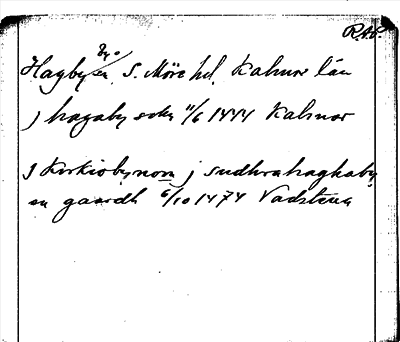 R.A.P.
Hagby sn S. Möre hd. Kalmar län
j hagaby sokn 11/6 1444 Kalmar
J Kirkiobynom j sudhrahaghaby
en gaardh 6/10 1474 Vadstena